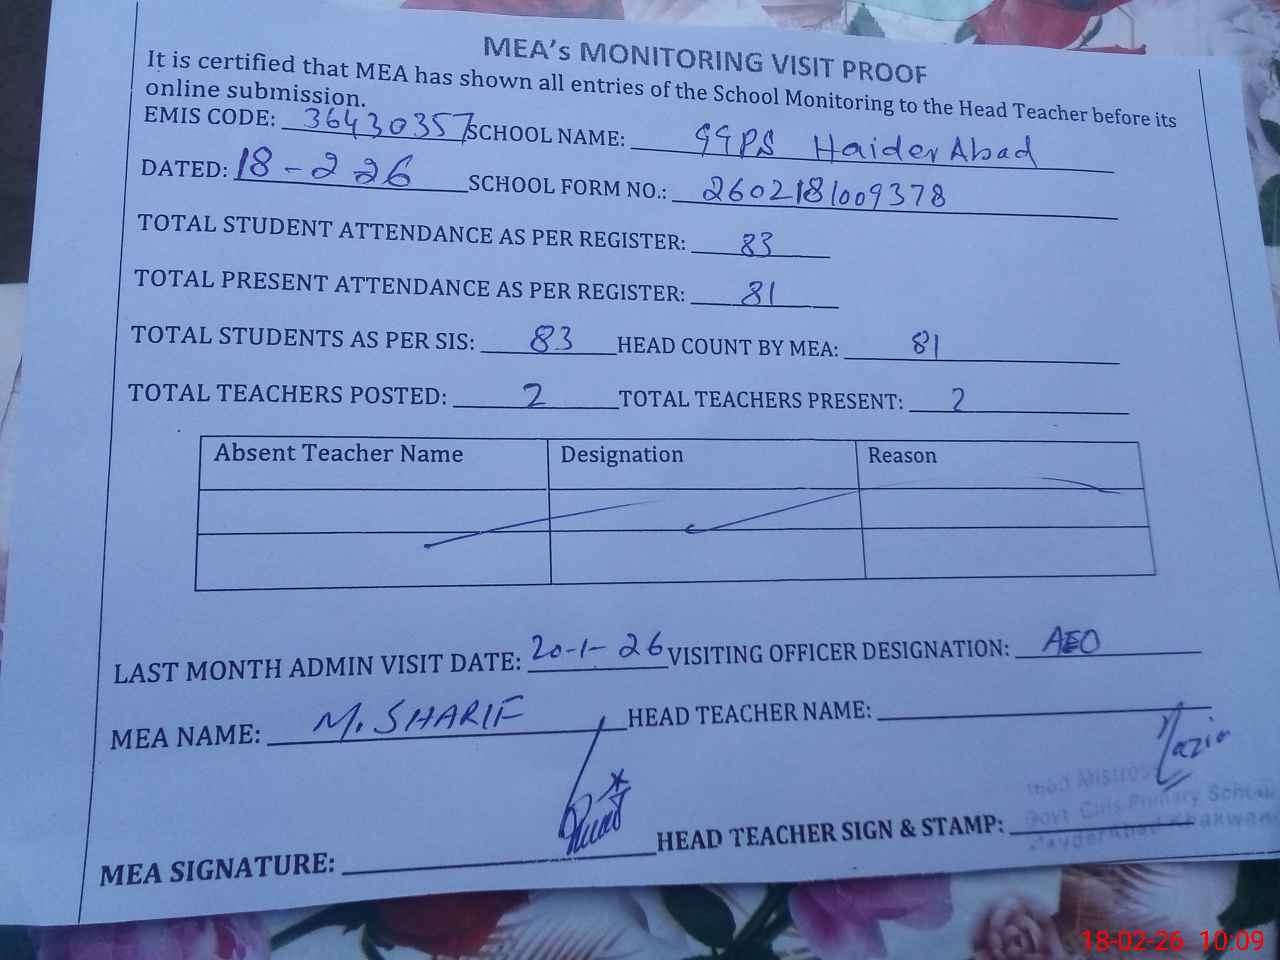 MEA's MONITORING VISIT PROOF
It is certified that MEA has shown all entries of the School Monitoring to the Head Teacher before its
online submission.
EMIS CODE: 36430357 SCHOOL NAME: GGPS Haider Abad
DATED: 18-2 26 SCHOOL FORM NO.: 2602181009378
TOTAL STUDENT ATTENDANCE AS PER REGISTER: 83
TOTAL PRESENT ATTENDANCE AS PER REGISTER: 81
TOTAL STUDENTS AS PER SIS: 83 HEAD COUNT BY MEA: 81
TOTAL TEACHERS POSTED: 2 TOTAL TEACHERS PRESENT: 2
Absent Teacher Name Designation Reason
LAST MONTH ADMIN VISIT DATE: 20-1-26 VISITING OFFICER DESIGNATION: AEO
MEA NAME: M. SHARIF HEAD TEACHER NAME:
Nazia
Head Mistress
Govt Girls Primary School
MEA SIGNATURE: HEAD TEACHER SIGN & STAMP:
18-02-26 10:09